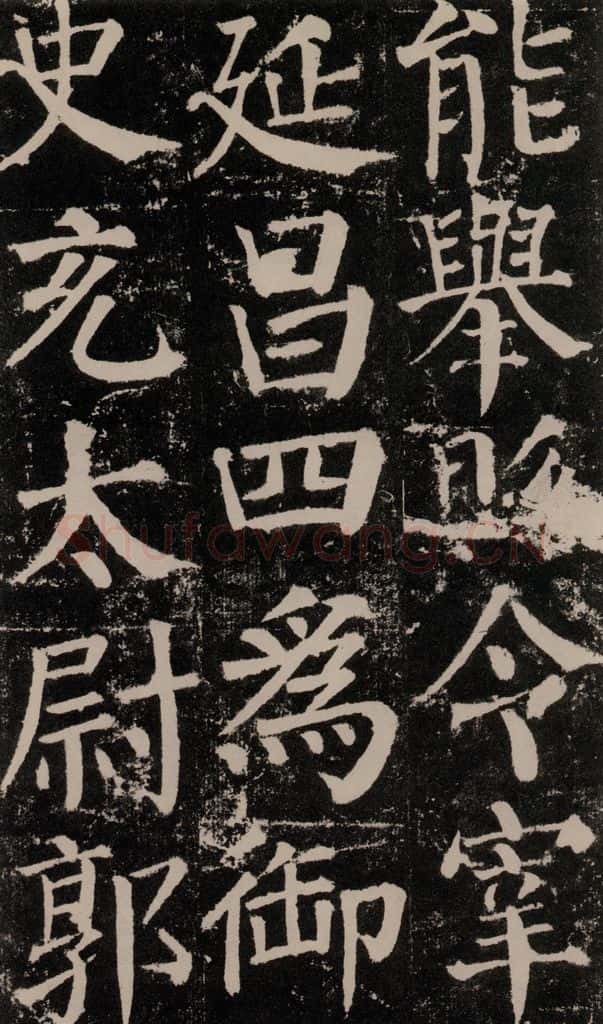 能舉令宰
延昌四爲御
史充太尉郭
Shufawang.CN